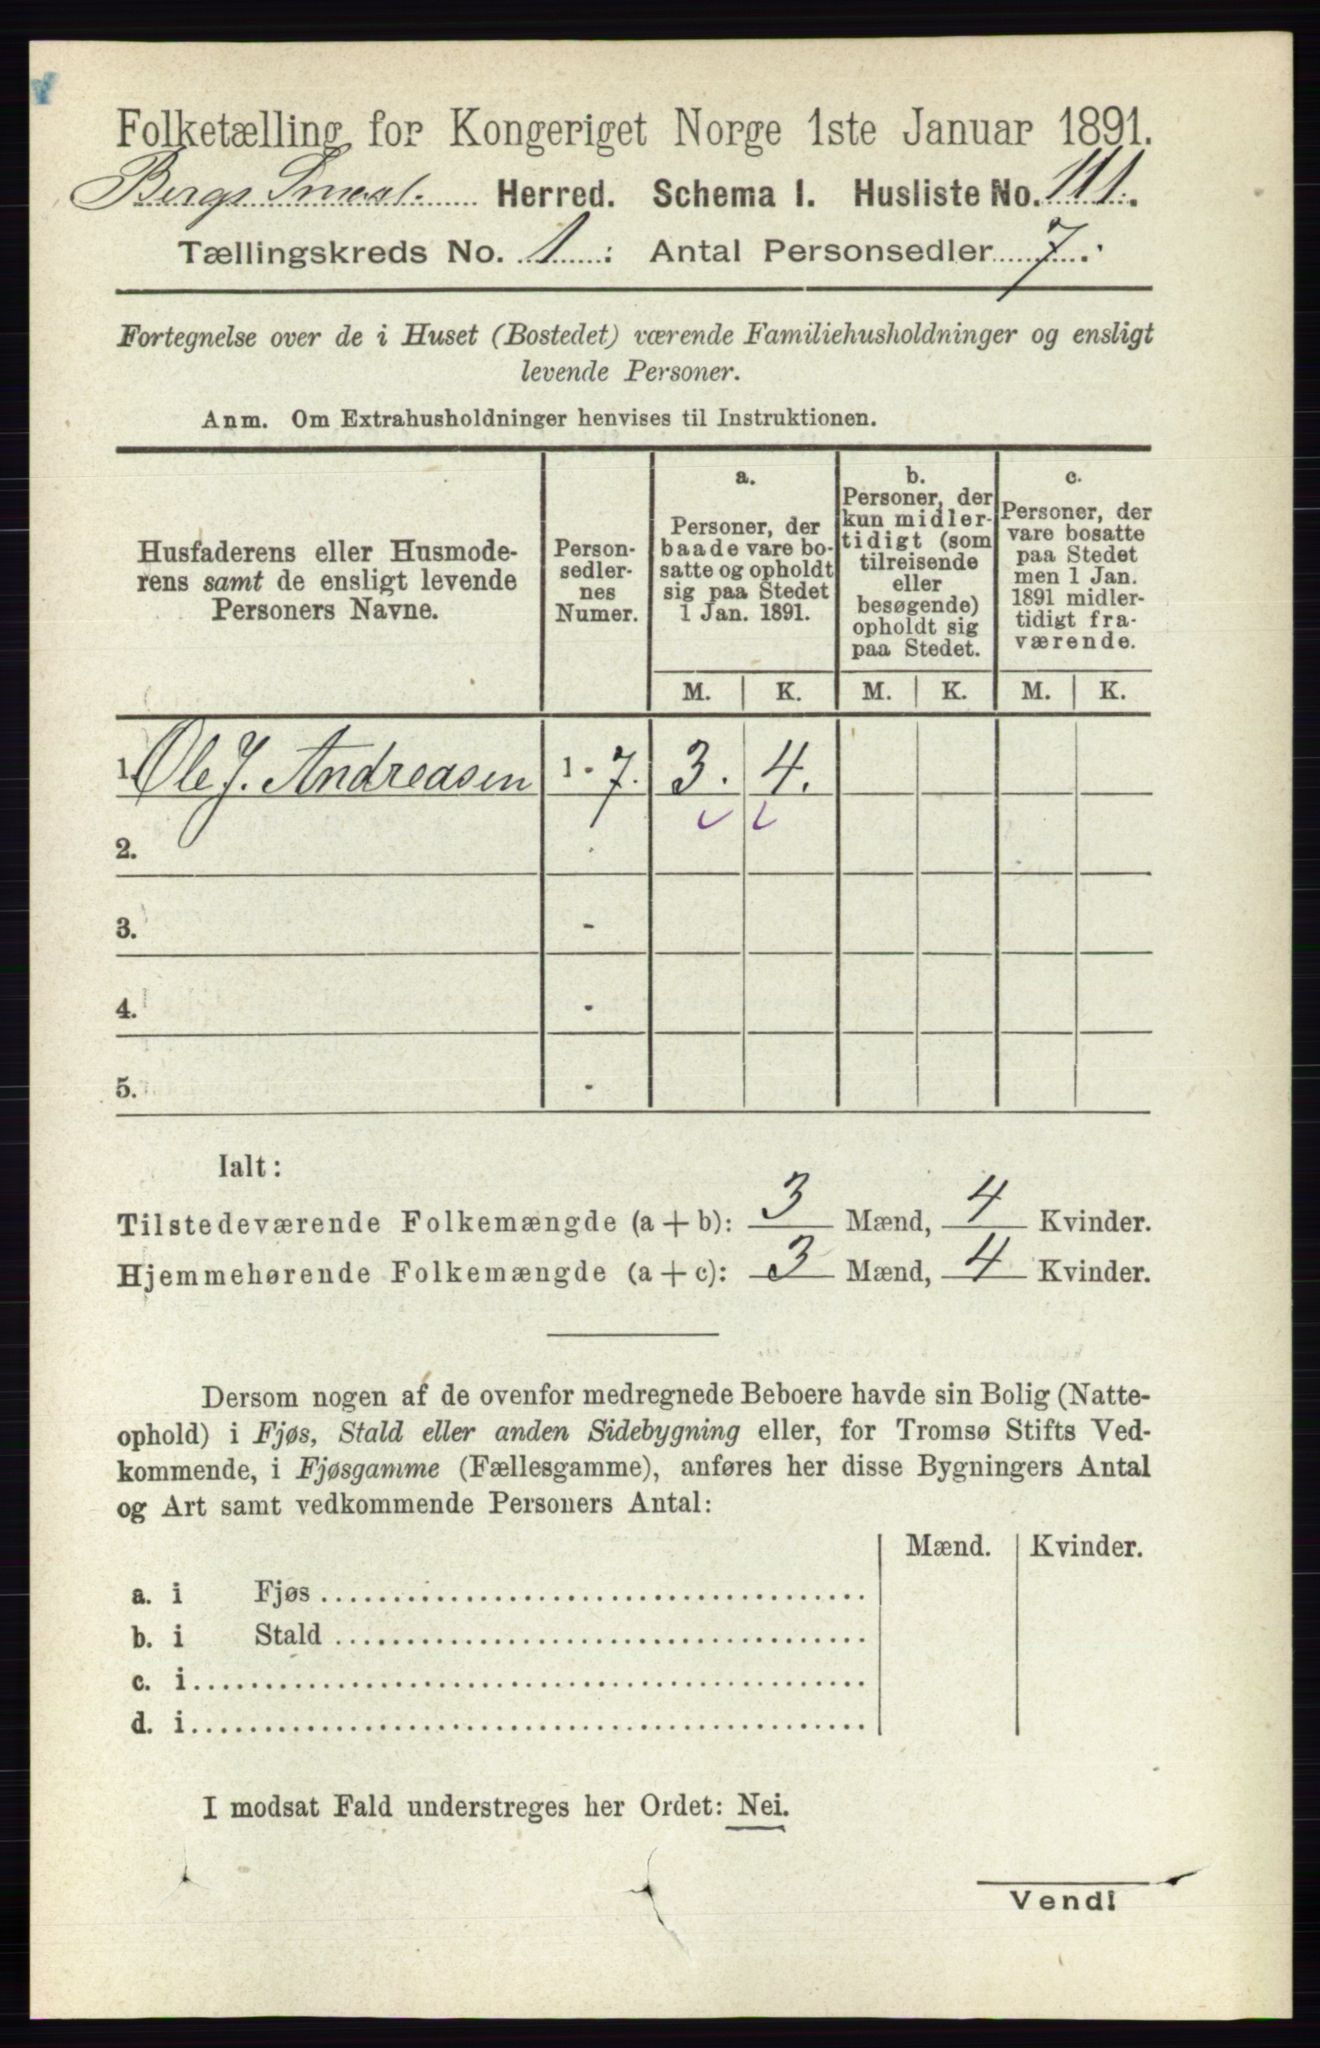 Folketælling for Kongeriget Norge 1ste Januar 1891.
Bergs Herred. Schema I. Husliste No. 111.
Tællingskreds No. 1 : Antal Personsedler 7.
Fortegnelse over de i Huset (Bostedet) værende Familiehusholdninger og ensligt
levende Personer.
Anm. Om Extrahusholdninger henvises til Instruktionen.
Husfaderens eller Husmode-
rens samt de ensligt levende
Personers Navne.
Person-
sedler-
nes
Numer.
a.
Personer, der
baade vare bo-
satte og opholdt
sig paa Stedet
1 Jan. 1891.
b.
Personer, der
kun midler-
tidigt (som
tilreisende
eller
besøgende)
opholdt sig
paa Stedet.
c.
Personer, der
vare bosatte
paa Stedet
men 1 Jan.
1891 midler-
tidigt fra-
værende.
M. K. M. K. M. K.
1. Ole J. Andreasen 1 - 7. 3. 4.
2. -
3. -
4. -
5. -
Ialt:
Tilstedeværende Folkemængde (a + b): 3 Mænd, 4 Kvinder.
Hjemmehørende Folkemængde (a + c): 3 Mænd, 4 Kvinder.
Dersom nogen af de ovenfor medregnede Beboere havde sin Bolig (Natte-
ophold) i Fjøs, Stald eller anden Sidebygning eller, for Tromsø Stifts Ved-
kommende, i Fjøsgamme (Fællesgamme), anføres her disse Bygningers Antal
og Art samt vedkommende Personers Antal:
Mænd. Kvinder.
a. i Fjøs
b. i Stald
c. i
d. i
I modsat Fald understreges her Ordet: Nei.
Vend!